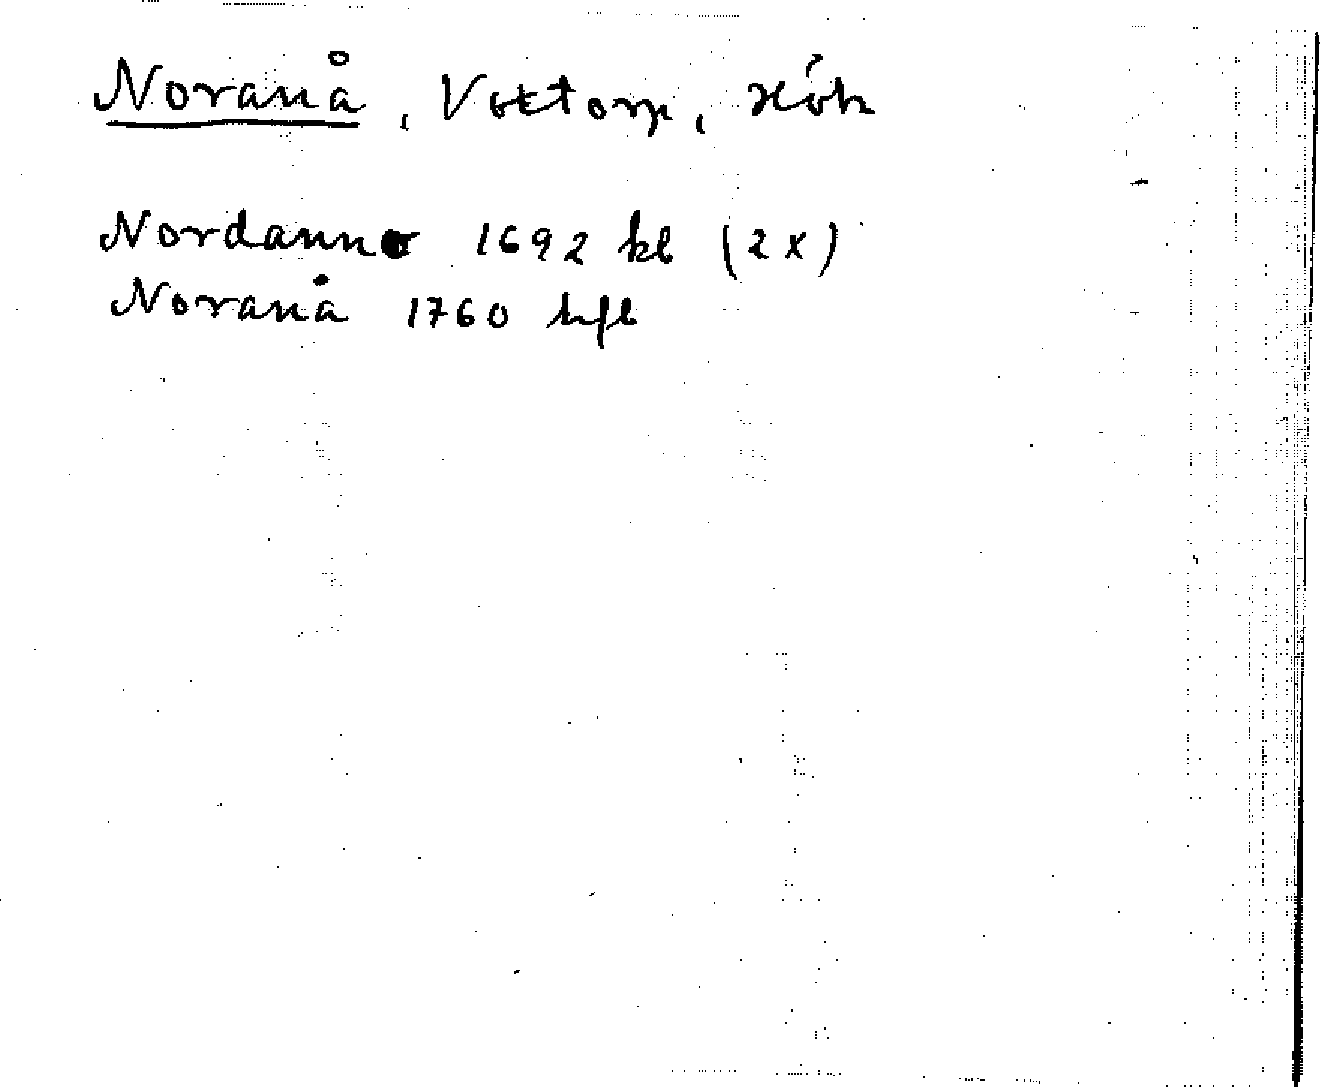 Noranå, Vottorp,
Nordanno 1692 kl (2x)
Noranå 1760 hfl